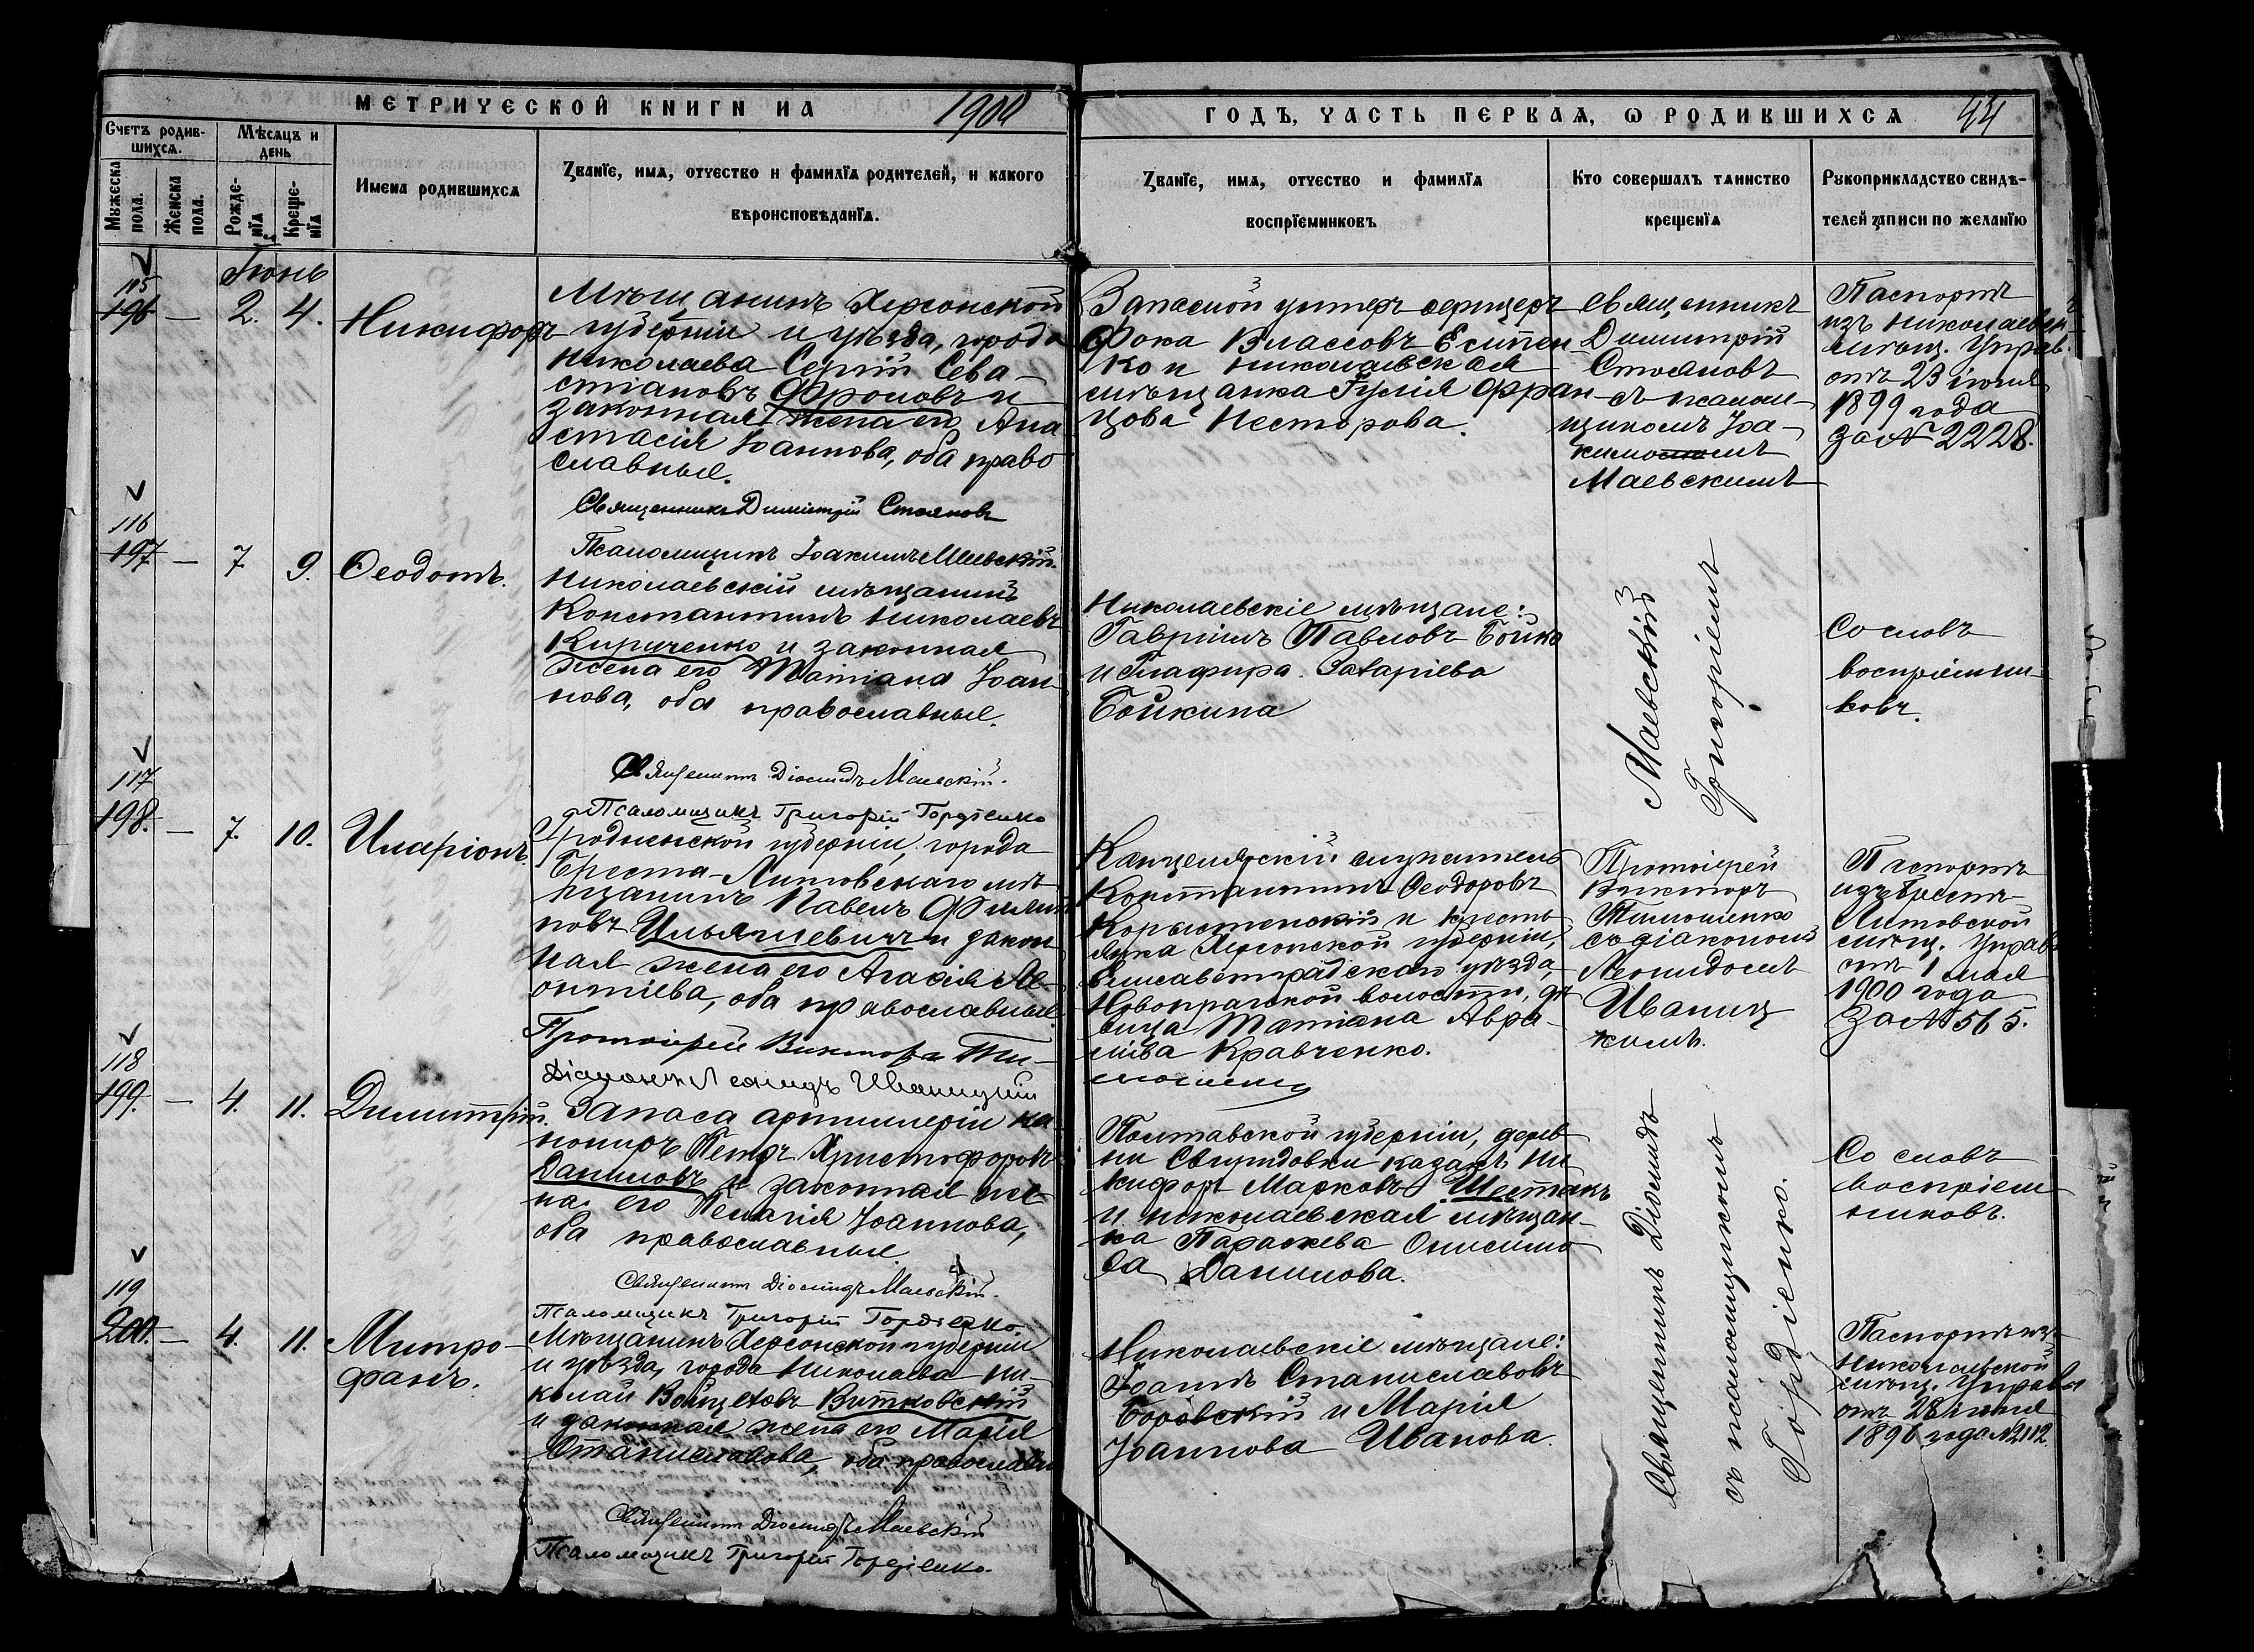 МЕТРИЧЕСКОЙ КНИГИ НА 1900
ГОДЪ, ЧАСТЬ ПЕРВАЯ, Ѡ РОДИВШИХСЯ 44
Счетъ родив-
шихся.
Мужеска
пола.
Женска
пола.
Мѣсяцъ и
день
Рожде-
нїя
Креще-
нїя
Имена родившихся
Званїе, имя, отчество и фамилїя родителей, и какого
вѣроисповѣданїя.
Званїе, имя, отчество и фамилїя
воспрїемниковъ
Кто совершалъ таинство
крещенїя
Рукоприкладство свидѣ-
телей записи по желанїю
Іюнь
115
196 — 2. 4. Никифоръ
Мѣщанинъ Херсонской
губерніи и уѣзда, города
Николаева Сергій Сева-
стіановъ Фроловъ и
законная жена его Ана
стасія Іоаннова, оба право
славные.
Священникъ Димитрій Стояновъ
Псаломщикъ Іоакимъ Маевскій.
Запасной унтеръ офицеръ
Фока Власовъ Есипен-
ко и николаевская
мѣщанка Гулія Фран-
цова Несторова.
Священникъ
Димитрій
Стояновъ
съ псалом-
щикомъ Іоа-
кимомъ
Маевскимъ
Паспортъ
изъ Николаевск.
мѣщ. Управ.
отъ 23 іюля
1899 года
за № 2228.
116
197 — 7 9. Ѳеодотъ.
Николаевскій мѣщанинъ
Константинъ Николаевъ
Кириченко и законная
жена его Татіана Іоан-
нова, оба православные.
Священникъ Діомидъ Маевскій.
Псаломщикъ Григорій Гордіенко
Николаевскіе мѣщане:
Гавріилъ Павловъ Бойко
и Глафира Захаріева
Бойкина
Маевскій
Григоріемъ
Со словъ
воспріемни-
ковъ.
117
198. — 7. 10. Иларіонъ.
Гродненской губерніи, города
Бреста-Литовскаго мѣ-
щанинъ Павелъ Филип
повъ Ильяшевичъ и закон
ная жена его Агафія Ле-
онтіева, оба православные.
Протоіерей Викторъ Ти-
мошенко
Діаконъ Леонидъ Иваницкій
Канцелярскій служитель
Константинъ Ѳеодоровъ
Корыстенскій и кресть
янка Херсонской губерніи,
Елисаветградскаго уѣзда,
Новопражской волости, дѣ
вица Татіана Авра-
міева Кравченко.
Протоіерей
Викторъ
Тимошенко
съ діакономъ
Леонидомъ
Иваниц
кимъ.
Паспортъ
изъ Брестъ-
Литовской
мѣщ. Управ.
отъ 1 мая
1900 года
за № 565.
118
199. — 4. 11. Димитрій.
Запаса артиллеріи ка-
нониръ Петръ Христофоровъ
Даниловъ и законная же-
на его Пелагія Іоаннова,
оба православные.
Священникъ Діомидъ Маевскій.
Псаломщикъ Григорій Гордіенко.
Полтавской губерніи, дерев
ни Свиридовки казакъ Ни
кифоръ Марковъ Шестакъ
и николаевская мѣщан-
ка Параскева Онисимо
ва Данилова.
Священникъ Діомидъ
съ псаломщикомъ
Гордіенко.
Со словъ
воспріем-
никовъ.
119
200. — 4. 11. Митро-
фанъ.
Мѣщанинъ Херсонской губерніи
и уѣзда, города Николаева Ни-
колай Войцеховъ Витковскій
и законная жена его Марія
Станиславова, оба православн
Священникъ Діомидъ Маевскій
Псаломщикъ Григорій Гордіенко.
Николаевскіе мѣщане:
Іоаннъ Станиславовъ
Боровскій и Марія
Іоаннова Иванова.
Паспортъ изъ
Николаевской
мѣщ. Управы
отъ 28 іюня
1896 года № 2112.